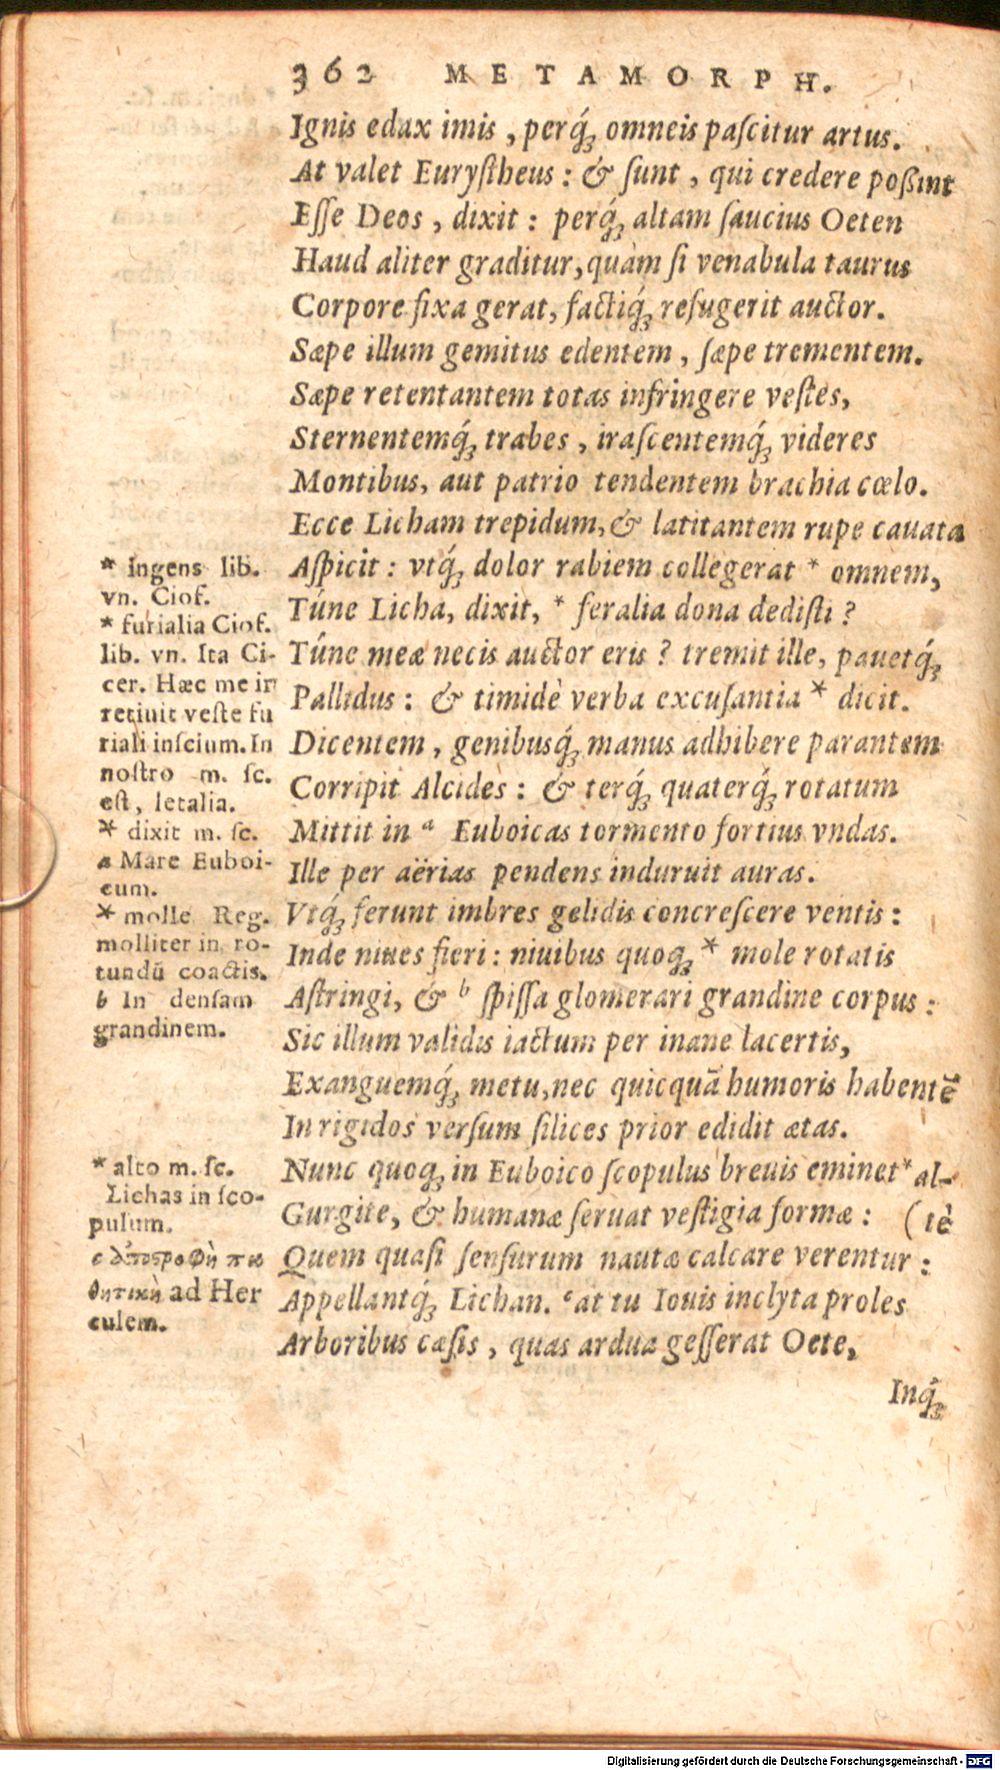 362 METAMORPH.
Ignis edax imis , perq́ꝫ omneis paſcitur artus.
At valet Euryſtheus : & ſunt , qui credere poßint
Eſſe Deos , dixit : perq́ꝫ altam ſaucius Oeten
Haud aliter graditur, quàm ſi venabula taurus
Corpore fixa gerat, factiq́ꝫ refugerit auctor.
Sæpe illum gemitus edentem , ſæpe trementem.
Sæpe retentantem totas infringere veſtes,
Sternentemq́ꝫ trabes , iraſcentemq́ꝫ videres
Montibus, aut patrio tendentem brachia cœlo.
Ecce Licham trepidum, & latitantem rupe cauata
Aſpicit : vtq́ꝫ dolor rabiem collegerat * omnem,
Túne Licha, dixit, * feralia dona dediſti ?
Túne meæ necis auctor eris ? tremit ille, pauetq́ꝫ
Pallidus : & timidè verba excuſantia * dicit.
Dicentem , genibusq́ꝫ manus adhibere parantem
Corripit Alcides : & terq́ꝫ quaterq́ꝫ rotatum
Mittit in a Euboicas tormento fortius vndas.
Ille per aërias pendens induruit auras.
Vtq́ꝫ ferunt imbres gelidis concreſcere ventis :
Inde niues fieri : niuibus quoqꝫ * mole rotatis
Aſtringi, & b ſpiſſa glomerari grandine corpus :
Sic illum validis iactum per inane lacertis,
Exanguemq́ꝫ metu, nec quicquã humoris habentẽ
In rigidos verſum ſilices prior edidit ætas.
Nunc quoqꝫ in Euboico ſcopulus breuis eminet * al-
Gurgite, & humanæ ſeruat veſtigia formæ : (tè
Quem quaſi ſenſurum nautæ calcare verentur :
Appellantq́ꝫ Lichan. c at tu Iouis inclyta proles
Arboribus cæſis , quas ardua geſſerat Oete,
Inq́ꝫ
* ingens lib.
vn. Ciof.
* furialia Ciof.
lib. vn. Ita Ci-
cer. Hæc me ir
retiuit veſte fu
riali inſcium. In
noſtro m. ſc.
eſt, letalia.
* dixit m. ſc.
a Mare Euboi-
cum.
* molle Reg.
molliter in ro-
tundũ coactis.
b In denſam
grandinem.
* alto m. ſc.
Lichas in ſco-
pulum.
c ἀποστροφὴ πα
θητικὴ ad Her
culem.
Digitalisierung gefördert durch die Deutsche Forschungsgemeinschaft - DFG